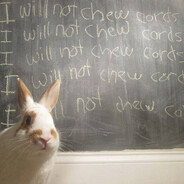 I will not chew cords
I will not chew cards
I will not chew cord
I will not chew cords
I will not chew co